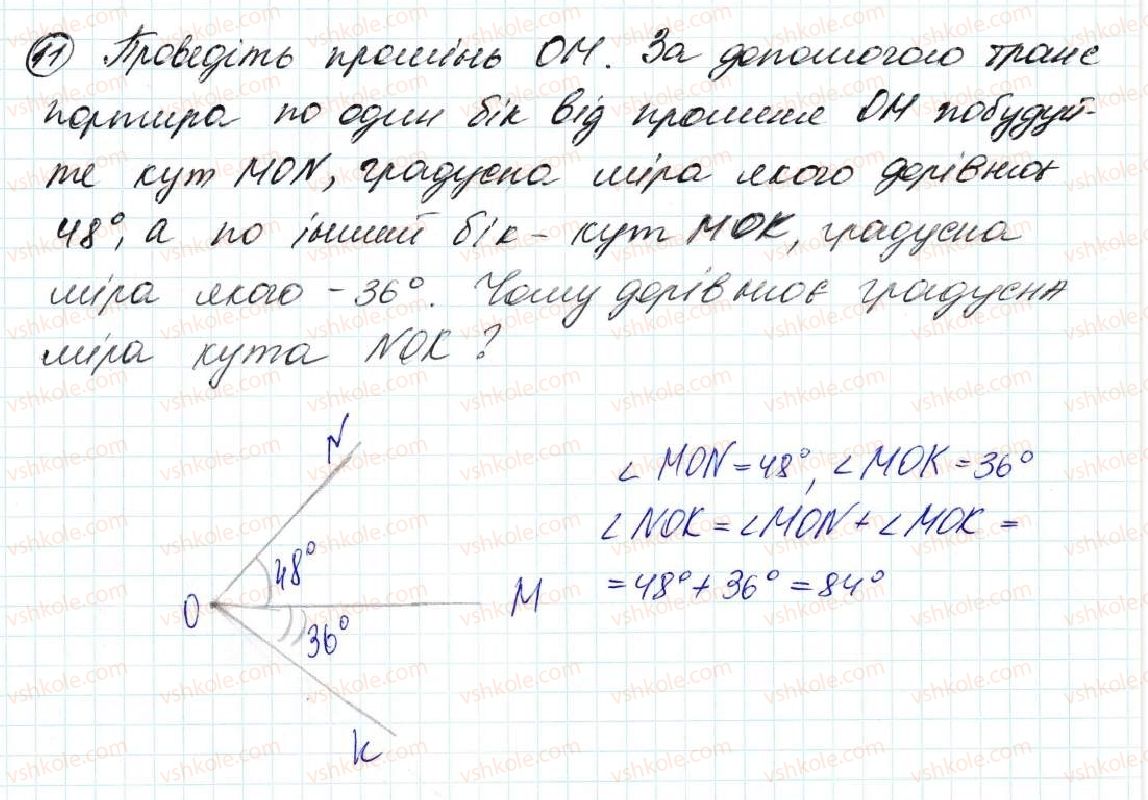 11 Проведіть промінь ОМ. За допомогою транс
портира по один бік від променя ОМ побудуй-
те кут MON, градусна міра якого дорівнює
48°, а по інший бік - кут МОК, градусна
міра якого - 36°. Чому дорівнює градусна
міра кута NOK?
N
∠ MON = 48°, ∠ MOK = 36°
∠ NOK = ∠ MON + ∠ MOK =
= 48° + 36° = 84°
48°
O
M
36°
K
vshkole.com